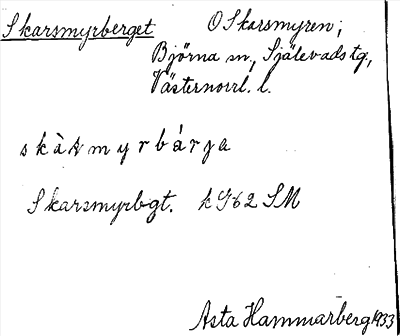 Skarsmyrberget O Skarsmyren;
Björna sn., Själevads tg.,
Västernorrl. l.
skàsmyrbárja
Skarsmyrbgt. k 962 SM
Asta Hammarberg 1933